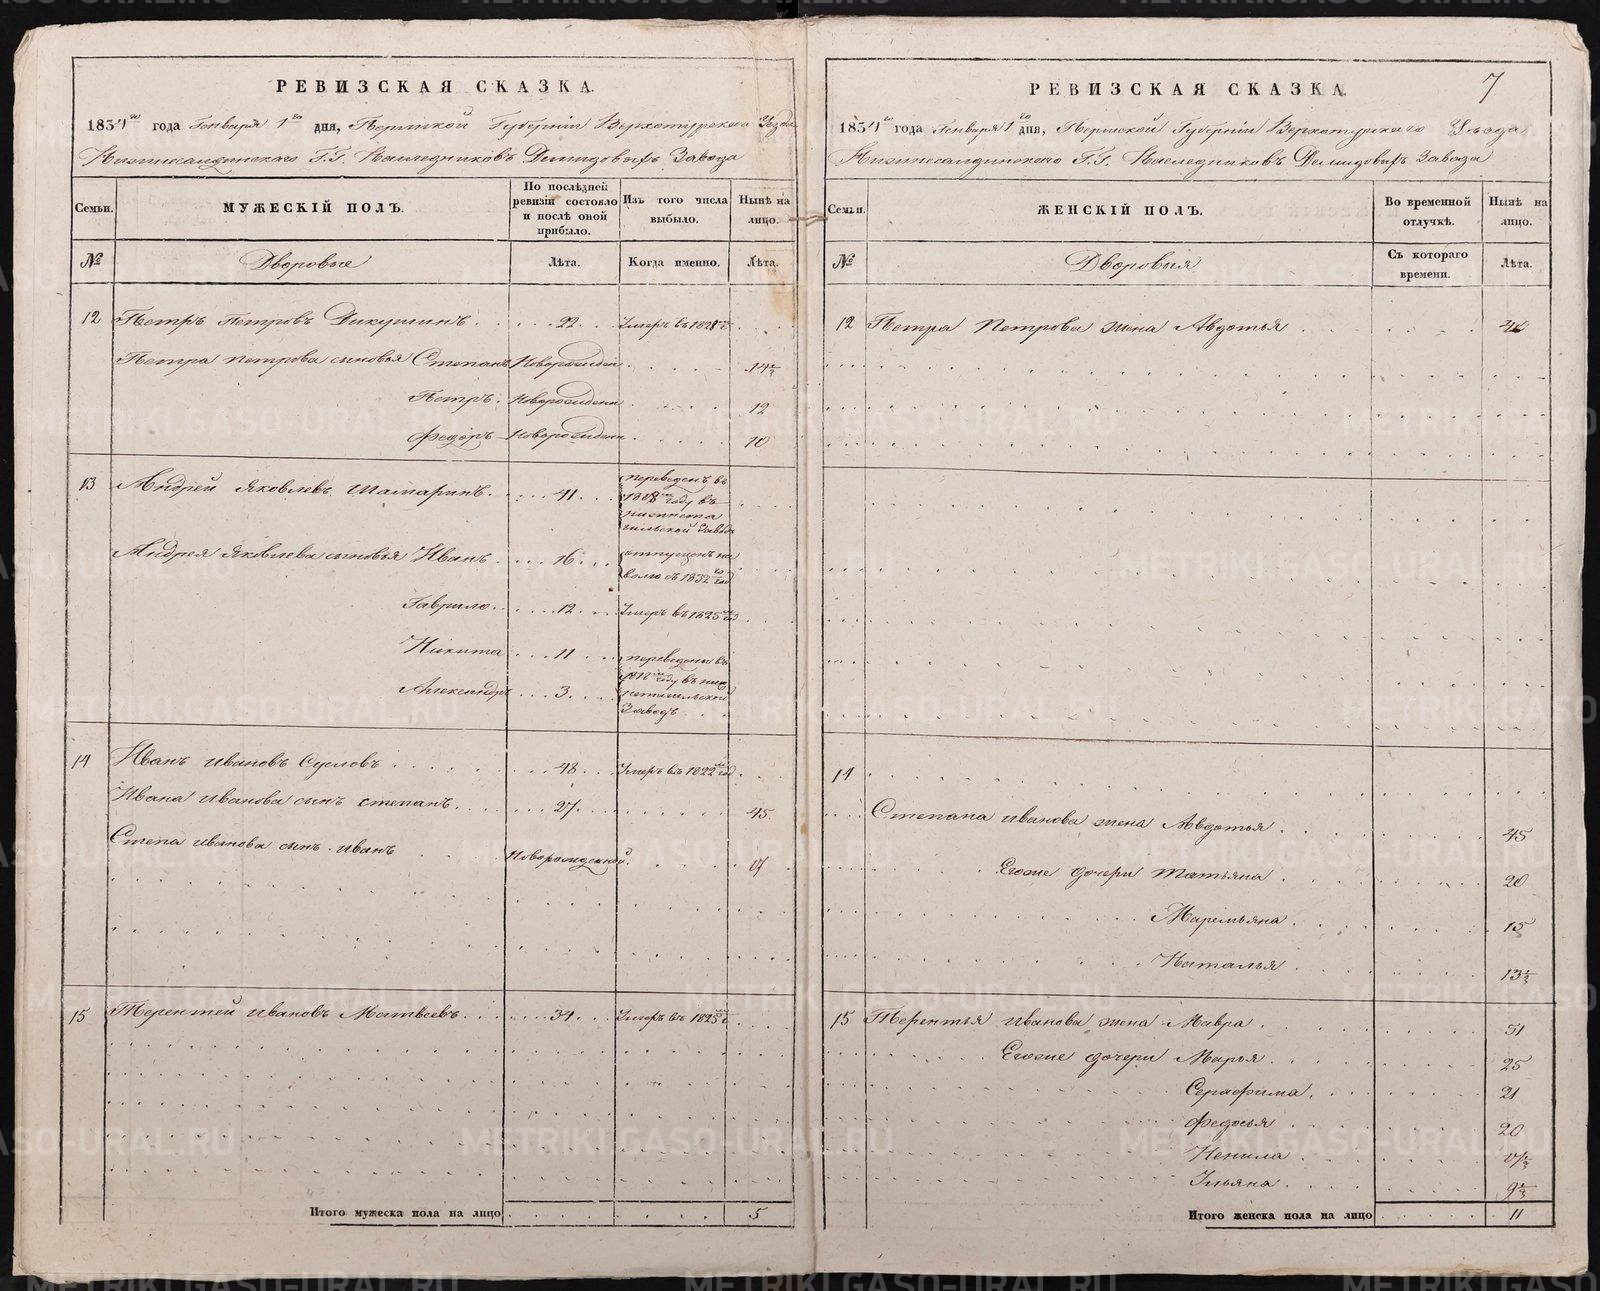 РЕВИЗСКАЯ СКАЗКА.
1834го года Генваря 1го дня, Пермской Губерніи Верхотурскаго Уезда
Нижнесалдинскаго Г.Г. Наследниковъ Демидовыхъ Завода
Семьи.
МУЖЕСКІЙ ПОЛЪ.
По послѣдней ревизіи состояло и послѣ оной прибыло.
Изъ того числа выбыло.
Нынѣ на лицо.
№
Дворовые
Лѣта.
Когда именно.
Лѣта.
12 Петръ Петровъ Дикушинъ 22 Умеръ въ
Петра Петрова сыновья Степанъ Новорожден 14½
Петръ Новорожден 12
Федоръ Новорожден 10
13 Андрей Яковлевъ Шамаринъ 41 переведенъ въ
году въ
нижнета
гильской Заводъ
Андрея Яковлева сыновья Иванъ 16 отпущенъ на
волю въ 1832 год
Гаврило 12 Умеръ въ 1825 год
Никита 11 переведены въ
году въ ниж
нетагильской
Александръ 3 Заводъ
14 Иванъ Ивановъ Сусловъ 48 Умеръ въ 1822 год
Ивана Иванова сынъ Степанъ 27 45
Степа Иванова сынъ Иванъ Новорожденной
15 Терентей Ивановъ Матвеевъ 34 Умеръ въ 1825
Итого мужеска пола на лицо 5
7
РЕВИЗСКАЯ СКАЗКА.
1834го года Генваря 1го дня, Пермской Губерніи Верхотурскаго Уъзда
Нижнесалдинскаго Г.Г. Наследниковъ Демидовыхъ Завода
Семьи.
ЖЕНСКІЙ ПОЛЪ.
Во временной отлучкѣ.
Нынѣ на лицо.
№
Дворовыя
Съ котораго времени.
Лѣта.
12 Петра Петрова жена Авдотья 40
14
Степана Иванова жена Авдотья 45
Егоже дочери Татьяна 20
Маремьяна 15
Наталья 13½
15 Терентья Иванова жена Мавра 51
Егоже дочери Марья 25
Серафима 21
Федосья 20
Ненила
Ульяна 9½
Итого женска пола на лицо 11
METRIKI.GASO-URAL.RU